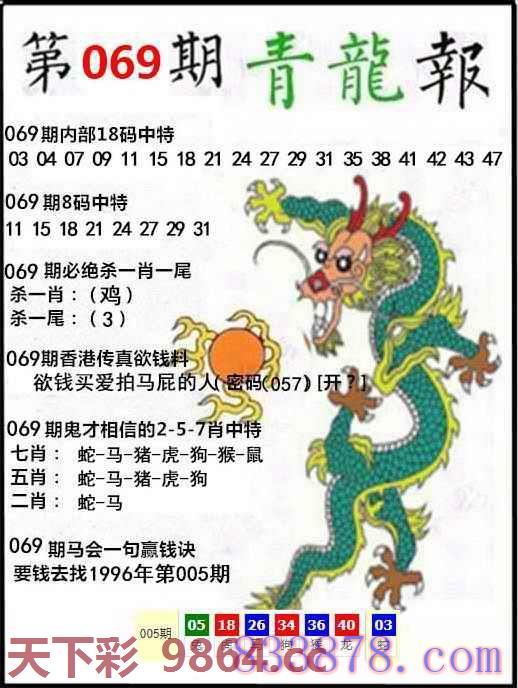 第069期 青龍報
069期内部18码中特
03 04 07 09 11 15 18 21 24 27 29 31 35 38 41 42 43 47
069期8码中特
11 15 18 21 24 27 29 31
069 期必绝杀一肖一尾
杀一肖：（鸡）
杀一尾：（3）
069期香港传真欲钱料
欲钱买爱拍马屁的人(密码(057) [开？]
069期鬼才相信的2-5-7肖中特
七肖： 蛇-马-猪-虎-狗-猴-鼠
五肖： 蛇-马-猪-虎-狗
二肖： 蛇-马
069 期马会一句赢钱诀
要钱去找1996年第005期
005期 05 18 26 34 36 40 03
狗 猴 龙 蛇
天下彩 9864.cc
838878.com